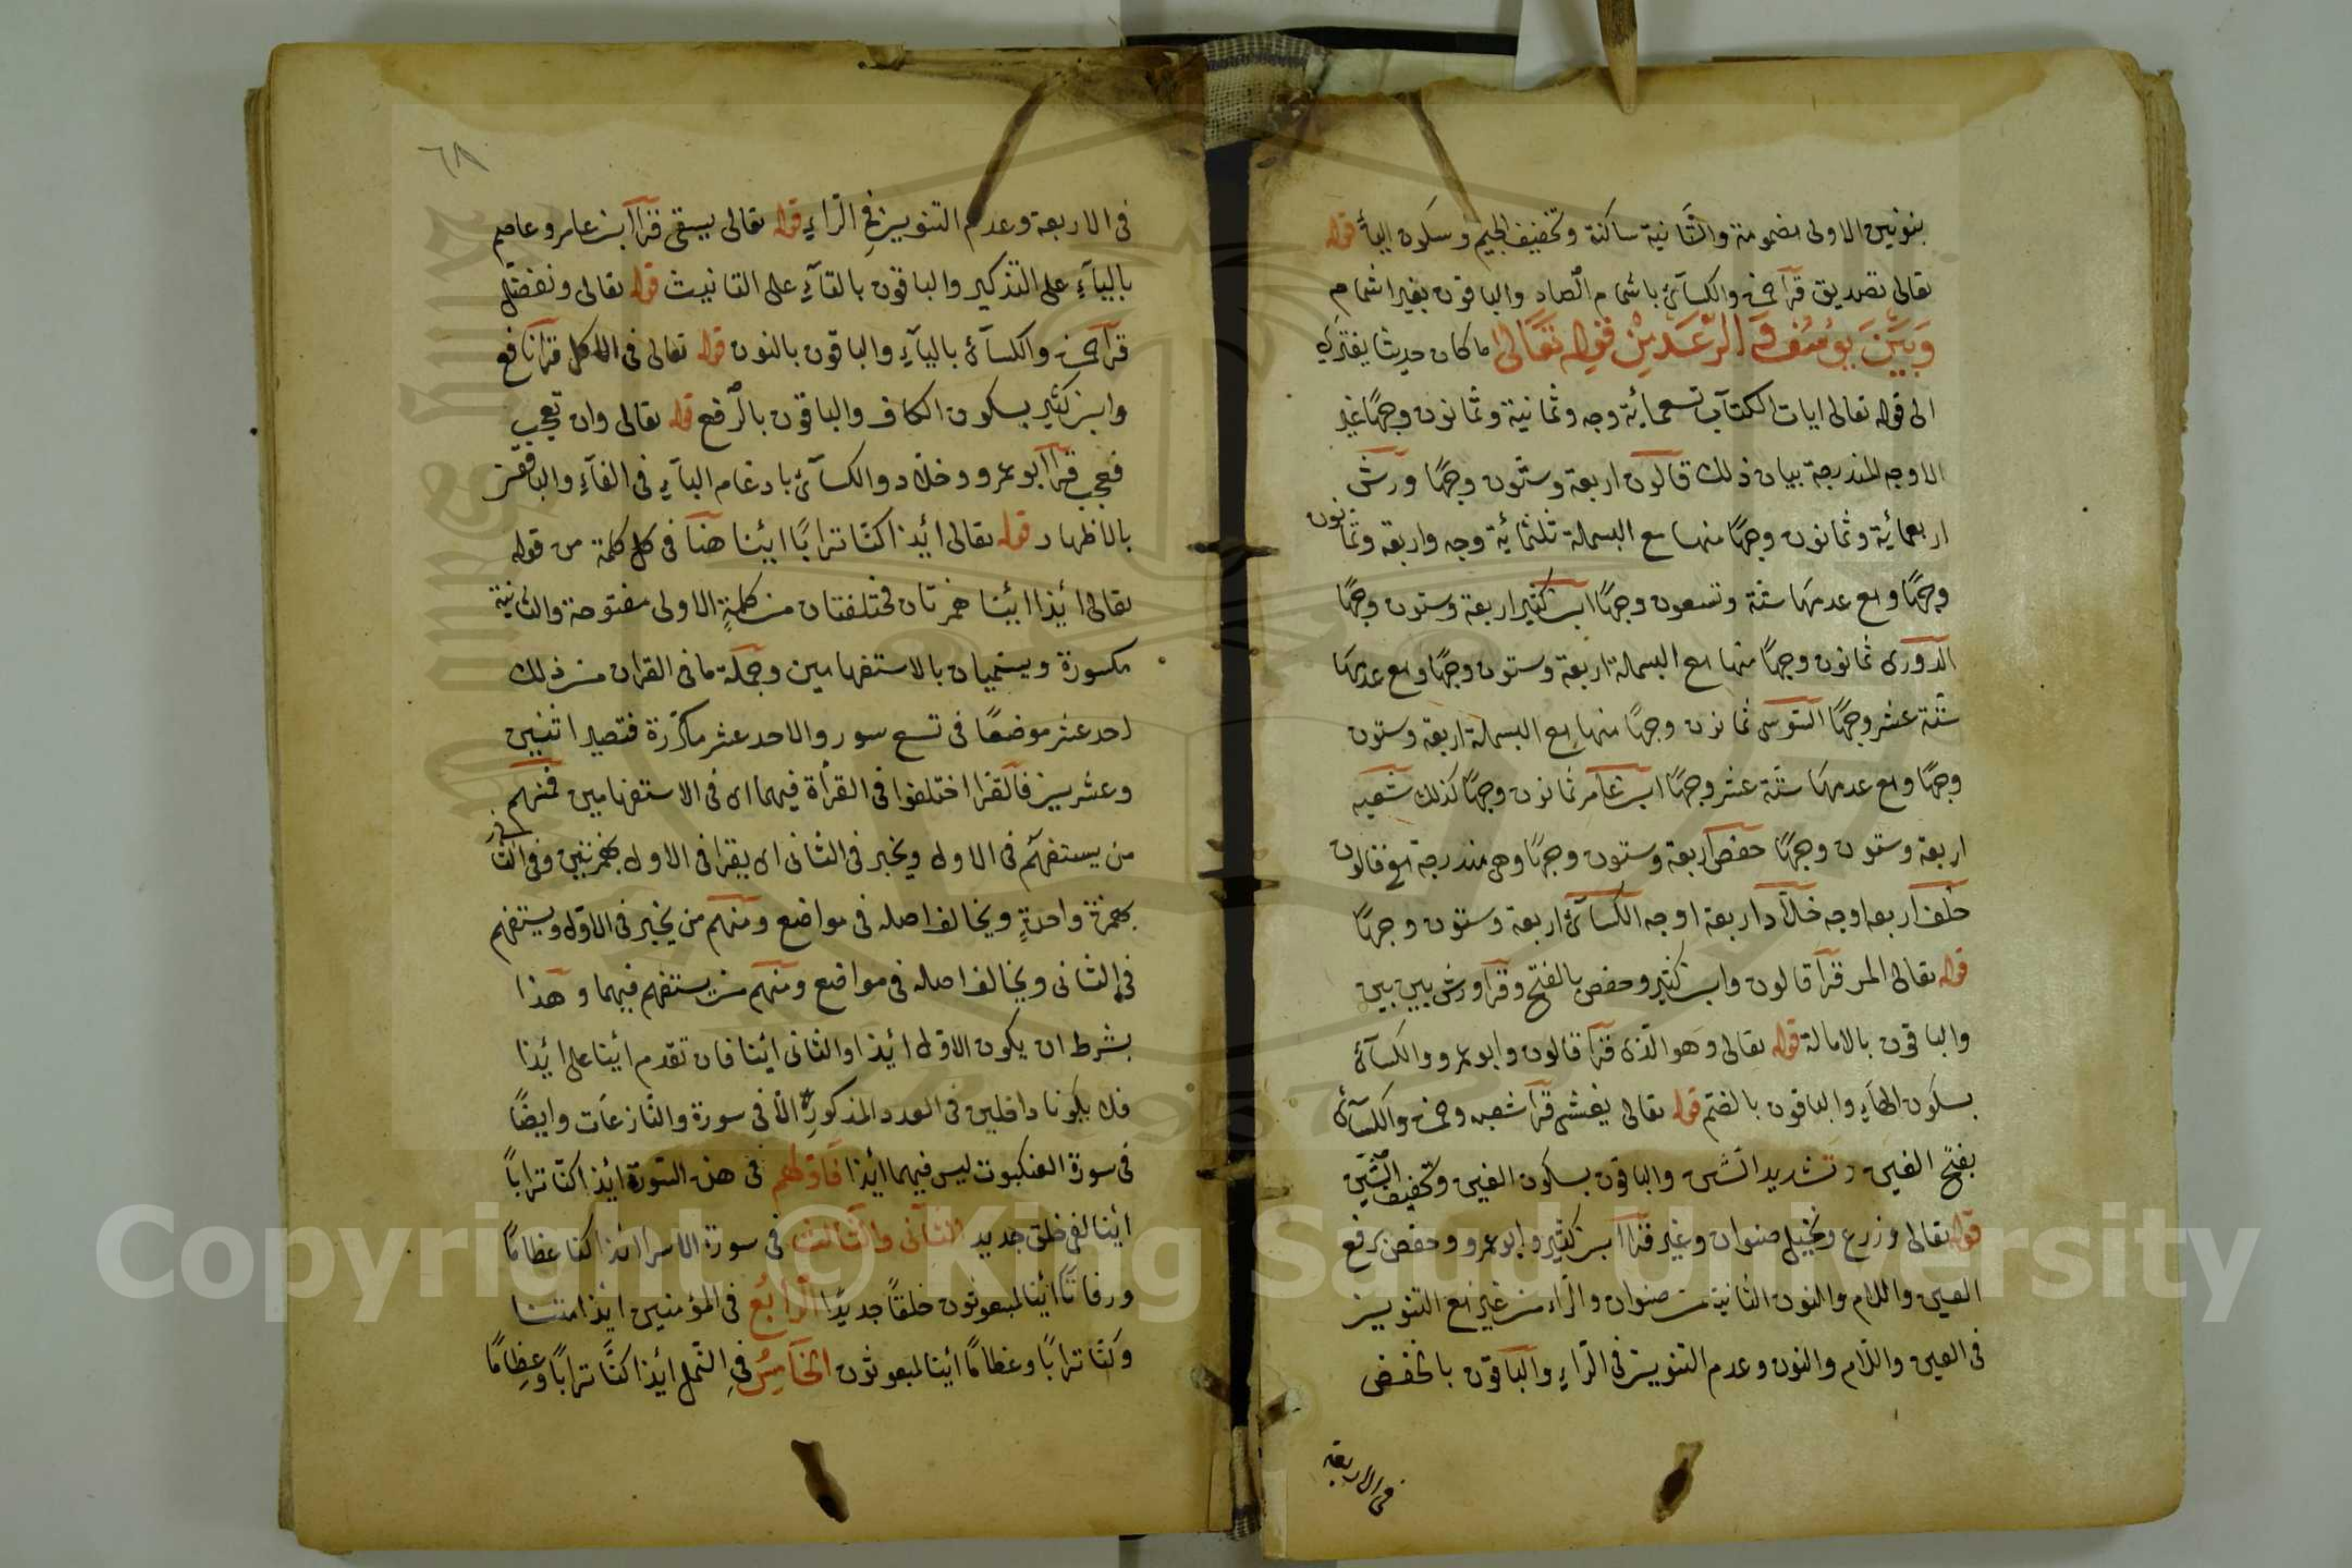 بنونين الاولى مضمومة والثانية ساكنة وتخفيف الجيم وسكون الياء قوله
تعالى تصديق قرأ حمزة والكسائى باشمام الصاد والباقون بغير اشمام
وَبَيَّنَ يوُسُفَ وَالرَّعَدِ مِنْ قوله تَعَالىٰ ما كان حديثا يفترى
الى قوله تعالى ايات الكتاب تسعمائة وجه وثمانية وثمانون وجهًا غير
الاوجه المندرجة بيان ذلك قالون اربعة وستون وجهًا ورش
اربعمائة وثمانون وجهًا منها مع البسملة ثلثمائة وجه واربعة وثمانون
وجهًا ومع عدمها ستة وتسعون وجهًا ابن كثير اربعة وستون وجهًا
الدورى ثمانون وجهًا منها مع البسملة اربعة وستون وجهًا ومع عدمها
ستة عشر وجهًا السّوسى ثمانون وجهًا منها مع البسملة اربعة وستون
وجهًا ومع عدمها ستة عشر وجهًا ابن عامر ثمانون وجهًا كذلك شعبه
اربعة وستون وجهًا حفص اربعة وستون وجهًا وهى مندرجة مع قالون
خلف اربعه اوجه خلاّد اربعة اوجه الكسائى اربعة وستون وجهًا
قوله تعالى المر قرأ قالون وابن كثير وحفص بالفتح وقرأ ورش بين بين
والباقون بالامالة قوله تعالى وهو الذى قرأ قالون وابو عمرو والكسائى
بسكون الهاء والباقون بالضم قوله تعالى يغشى قرأ شعبه وحمزة والكسائى
بفتح الغين وتشديد الشين والباقون بسكون الغين وتخفيف الشين
قوله تعالى وزرع ونخيل صنوان وغير قرأ ابن كثير وابو عمرو وحفص برفع
العين واللام والنون الثانية من صنوان والراء من غير مع التنوين
فى العين واللام والنون وعدم التنوين فى الراء والباقون بالخفض
فى الاربعة
٦٨
فى الاربعة وعدم التنوين فى الراء قوله تعالى يسقى قرأ ابن عامر وعاصم
بالياء على التذكير والباقون بالتاء على التانيث قوله تعالى ونفضل
قرأ حمزة والكسائى بالياء والباقون بالنون قوله تعالى فى الاكل قرأ نافع
وابن كثير بسكون الكاف والباقون بالرفع قوله تعالى وان تعجب
فعجب قرأ ابو عمرو وخلاد والكسائى بادغام الباء فى الفاء والباقون
بالاظهار قوله تعالى أئذا كنّا ترابًا ائنا هنا فى كل كلمة من قوله
تعالى ائذا ائنا همزتان مختلفتان من كلمةٍ الاولى مفتوحة والثانية
مكسورة ويسميان بالاستفهامين وجملة ما فى القران من ذلك
احد عشر موضعًا فى تسع سور والاحد عشر مكرّرة فتصير اثنين
وعشرين فالقرا اختلفوا فى القرأة فيهما اى فى الاستفهامين فمنهم
من يستفهم فى الاول ويخبر فى الثانى اى يقرا فى الاول بهمزتين وفى الثانى
بهمزة واحدةٍ ويخالف اصله فى مواضع ومنهم من يخبر فى الاول ويستفهم
فى الثانى ويخالف اصله فى مواضع ومنهم من يستفهم فيهما وهذا
بشرط ان يكون الاول ائذا والثانى ائنا فان تقدم ائنا على ائذا
فلا يكونا داخلين فى العدد المذكور الّا فى سورة والنّازعَات وايضًا
فى سورة العنكبوت ليس فيهما ائذا فاولهم فى هذه السّورة ائذا كنّا ترابًا
ائنا لفى خلق جديد الثانى والثالث فى سورة الاسرا ائذا كنا عظامًا
ورفاتًا ائنا لمبعوثون خلقًا جديدًا الرّابُع فى المؤمنين ائذا متنا
وكنّا ترابًا وعظامًا ائنا لمبعوثون الخَامِسُ فى النّمل ائذا كنّا ترابًا وعظامًا
Copyright © King Saud University